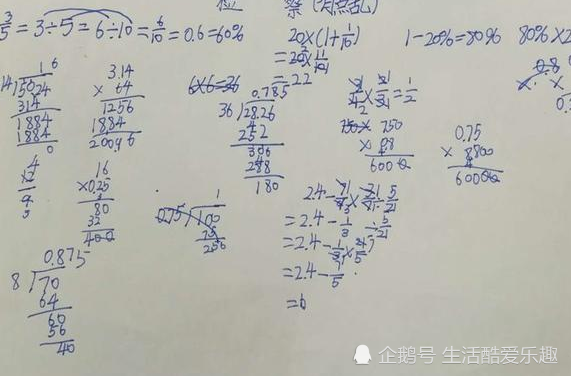 3/5 = 3÷5 = 6÷10 = 6/10 = 0.6 = 60%
20×(1+1/10)
= 22
1-20%=80%
80%×2
16
5024
314
1884
1884
0
3.14
× 64
1256
1884
200.96
6×6=36
0.785
36 28.26
252
306
288
180
=1/2
750
6000
0.75
× 8800
6000
16
×0.25
80
32
400
0.75 100
75
250
2.4-
=2.4-1/3÷5/21
=2.4-
=2.4-7/5
0.875
8 70
64
60
56
40
企鹅号 生活酷爱乐趣